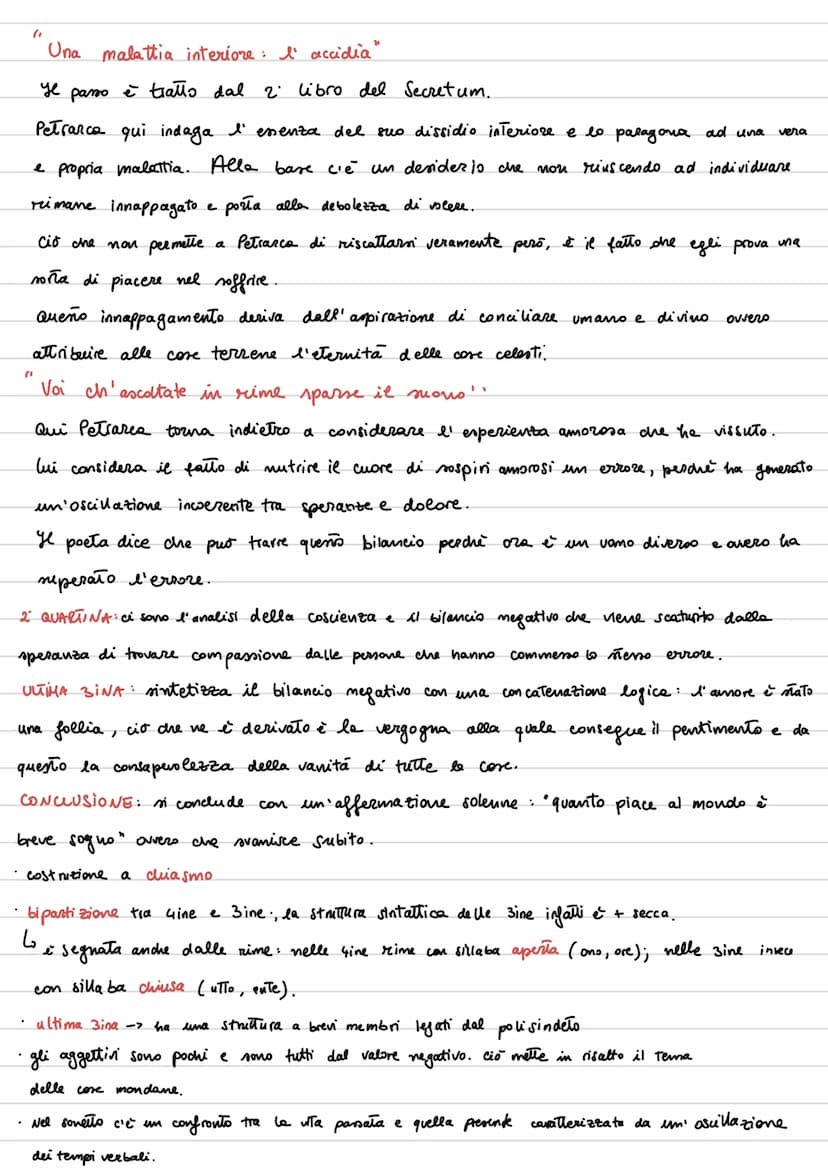 "Una malattia interiore: l'accidia"
Il passo è tratto dal 2° libro del Secretum.
Petrarca qui indaga l'essenza del suo dissidio interiore e lo paragona ad una vera
e propria malattia. Alla base c'è un desiderio che non riuscendo ad individuare
rimane innappagato e porta alla debolezza di volere.
Ciò che non permette a Petrarca di riscattarsi veramente però, è il fatto che egli prova una
sorta di piacere nel soffrire.
Questo innappagamento deriva dall'aspirazione di conciliare umano e divino ovvero
attribuire alle cose terrene l'eternità delle cose celesti.
"Voi ch'ascoltate in rime sparse il suono"
Qui Petrarca torna indietro a considerare l'esperienza amorosa che ha vissuto.
Lui considera il fatto di nutrire il cuore di sospiri amorosi un errore, perché ha generato
un'oscillazione incoerente tra speranze e dolore.
Il poeta dice che può trarre questo bilancio perché ora è un uomo diverso e ovvero ha
superato l'errore.
2° QUARTINA: ci sono l'analisi della coscienza e il bilancio negativo che viene scaturito dalla
speranza di trovare compassione dalle persone che hanno commesso lo stesso errore.
ULTIMA 3INA: sintetizza il bilancio negativo con una concatenazione logica: l'amore è stato
una follia, ciò che ne è derivato è la vergogna alla quale consegue il pentimento e da
questo la consapevolezza della vanità di tutte le cose.
CONCLUSIONE: si conclude con un'affermazione solenne: "quanto piace al mondo è
breve sogno" ovvero che svanisce subito.
· costruzione a chiasmo
· bipartizione tra 4ine e 3ine, la struttura sintattica delle 3ine infatti è + secca.
↳ è segnata anche dalle rime: nelle 4ine rime con sillaba aperta (ono, ore); nelle 3ine invece
con sillaba chiusa (utto, ente).
· ultima 3ina -> ha una struttura a brevi membri legati dal polisindeto
· gli aggettivi sono pochi e sono tutti dal valore negativo. ciò mette in risalto il tema
delle cose mondane.
· Nel sonetto c'è un confronto tra la vita passata e quella presente caratterizzata da un'oscillazione
dei tempi verbali.